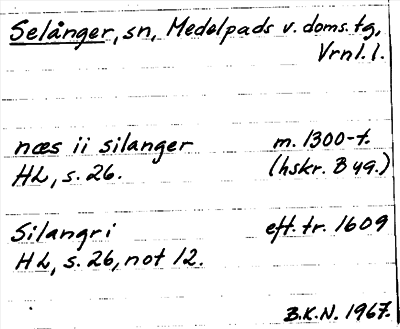 Selånger, sn, Medelpads v. doms. tg,
Vrnl. l.
næs ii silanger m. 1300-t.
HL, s. 26. (hskr. B yg.)
Silangri eft. tr. 1609
HL, s. 26, not 12.
B.K.N. 1967.